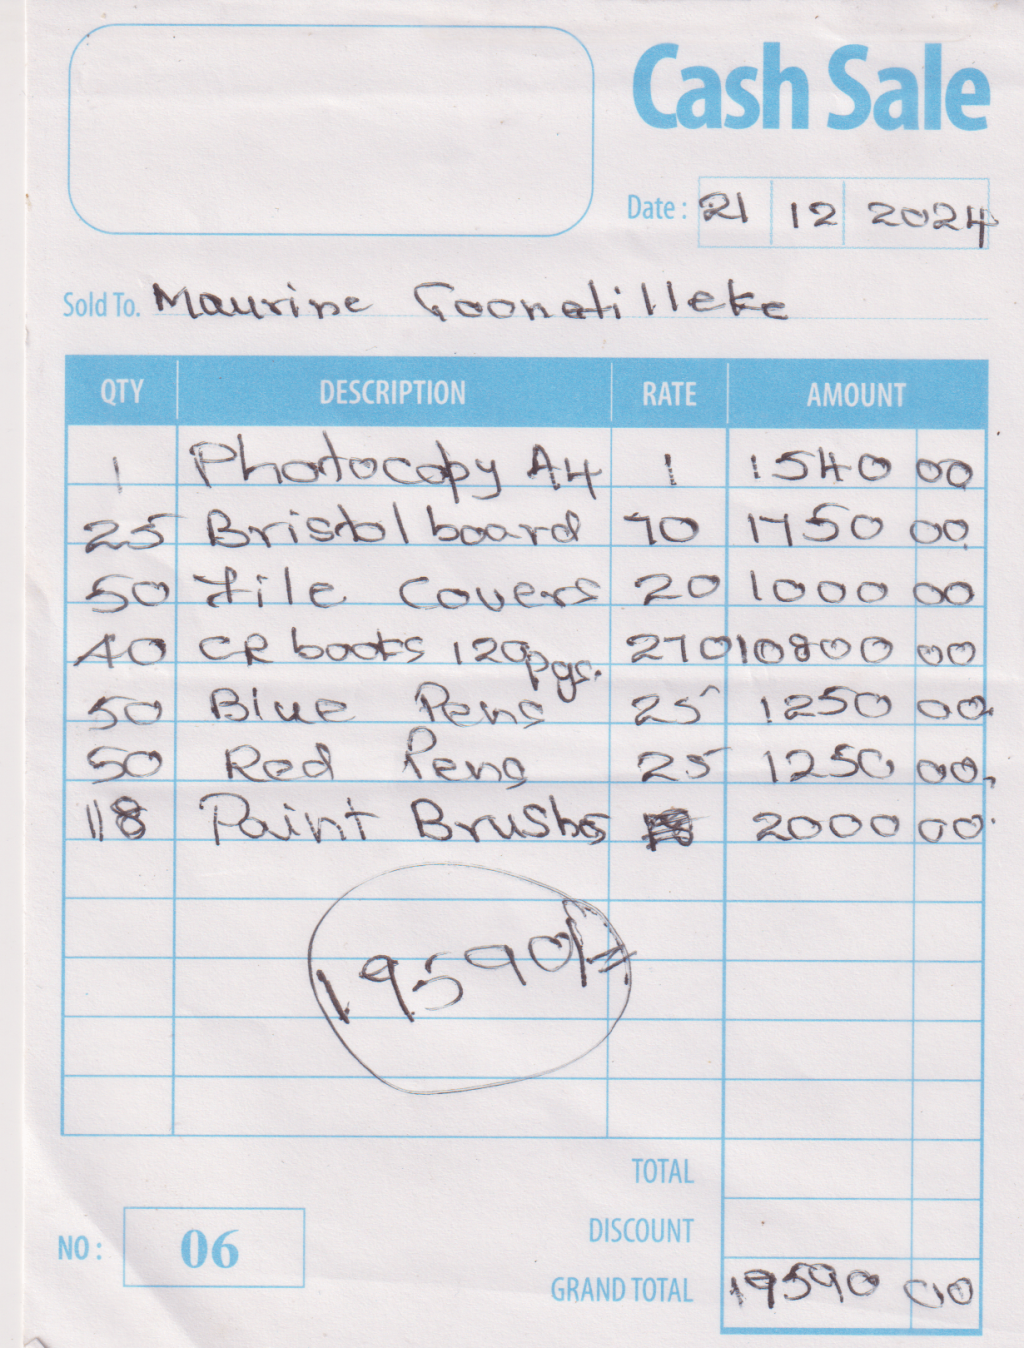 Cash Sale
Date : 21 12 2024
Sold To. Maurine Goonatilleke
QTY DESCRIPTION RATE AMOUNT
1 Photocopy A4 1 1540 00
25 Bristol board 70 1750 00
50 File Covers 20 1000 00
40 CR books 120pgs. 270 10800 00
50 Blue Pens 25 1250 00
50 Red Pens 25 1250 00
118 Paint Brushes 2000 00
19590/=
TOTAL
DISCOUNT
NO : 06
GRAND TOTAL 19590 00